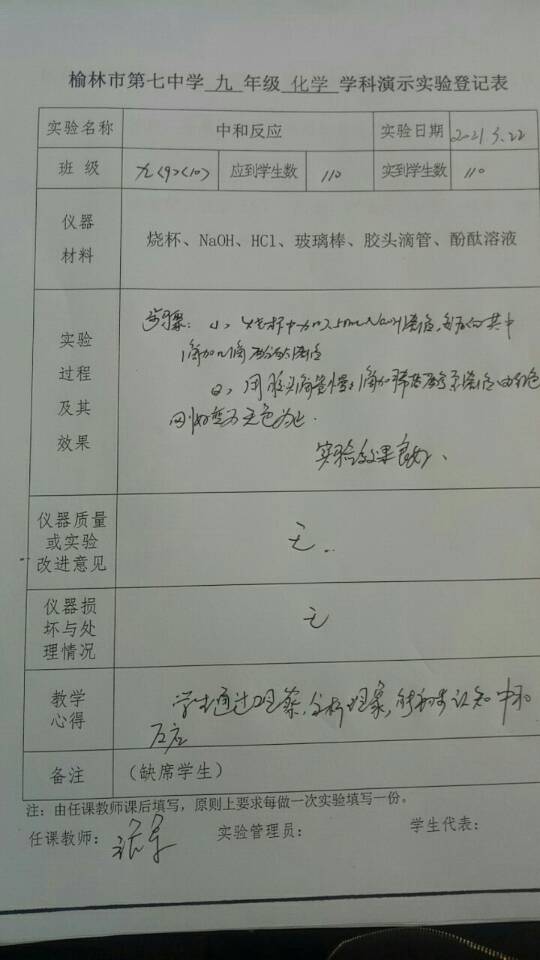 榆林市第七中学 九 年级 化学 学科演示实验登记表
实验名称 中和反应 实验日期 2021.3.22
班 级 九<9><10> 应到学生数 110 实到学生数 110
仪器
材料
烧杯、NaOH、HCl、玻璃棒、胶头滴管、酚酞溶液
实验
过程
及其
效果
步骤: 烧杯中加入 5mLNaOH溶液, 其中
滴加几滴酚酞溶液
用胶头滴管慢慢滴加稀 溶液由红色
刚好变为无色为止.
实验效果良好.
仪器质量
或实验
改进意见
无
仪器损
坏与处
理情况
无
教学
心得
学生通过观察,分析现象,能 认知中和
反应
备注 (缺席学生)
注:由任课教师课后填写,原则上要求每做一次实验填写一份。
任课教师: 实验管理员: 学生代表: